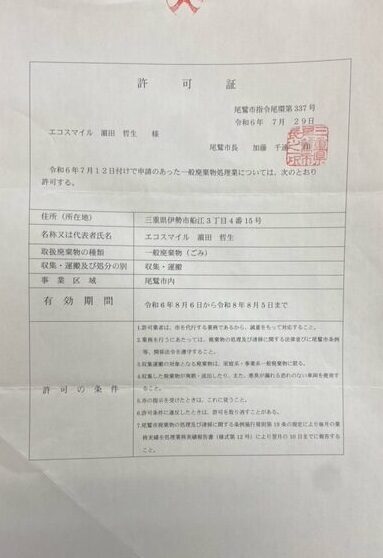 許可証
尾鷲市指令尾環第337号
令和6年 7月 29日
エコスマイル 濵田 哲生 様
尾鷲市長 加藤 千速
令和6年7月12日付けで申請のあった一般廃棄物処理業については、次のとおり
許可する。
住所(所在地) 三重県伊勢市船江3丁目4番15号
名称又は代表者氏名 エコスマイル 濵田 哲生
取扱廃棄物の種類 一般廃棄物(ごみ)
収集・運搬及び処分の別 収集・運搬
事業区域 尾鷲市内
有効期間 令和6年8月6日から令和8年8月5日まで
許可の条件
1.許可業者は、市を代行する業務であるから、誠意をもって対応すること。
2.業務を行うにあたっては、廃棄物の処理及び清掃に関する法律並びに尾鷲市条例
等、関係法令を遵守すること。
3.収集運搬の対象となる廃棄物は、家庭系・事業系一般廃棄物に限る。
4.収集した廃棄物が飛散・流出したり、また、悪臭が漏れる恐れのない車両を使用す
ること。
5.市の指示を受けたときは、これに従うこと。
6.許可条件に違反したときは、許可を取り消すことがある。
7.尾鷲市廃棄物の処理及び清掃に関する条例施行規則第19条の規定により毎月の業
務実績を処理業務実績報告書(様式第12号)により翌月の10日までに報告するこ
と。